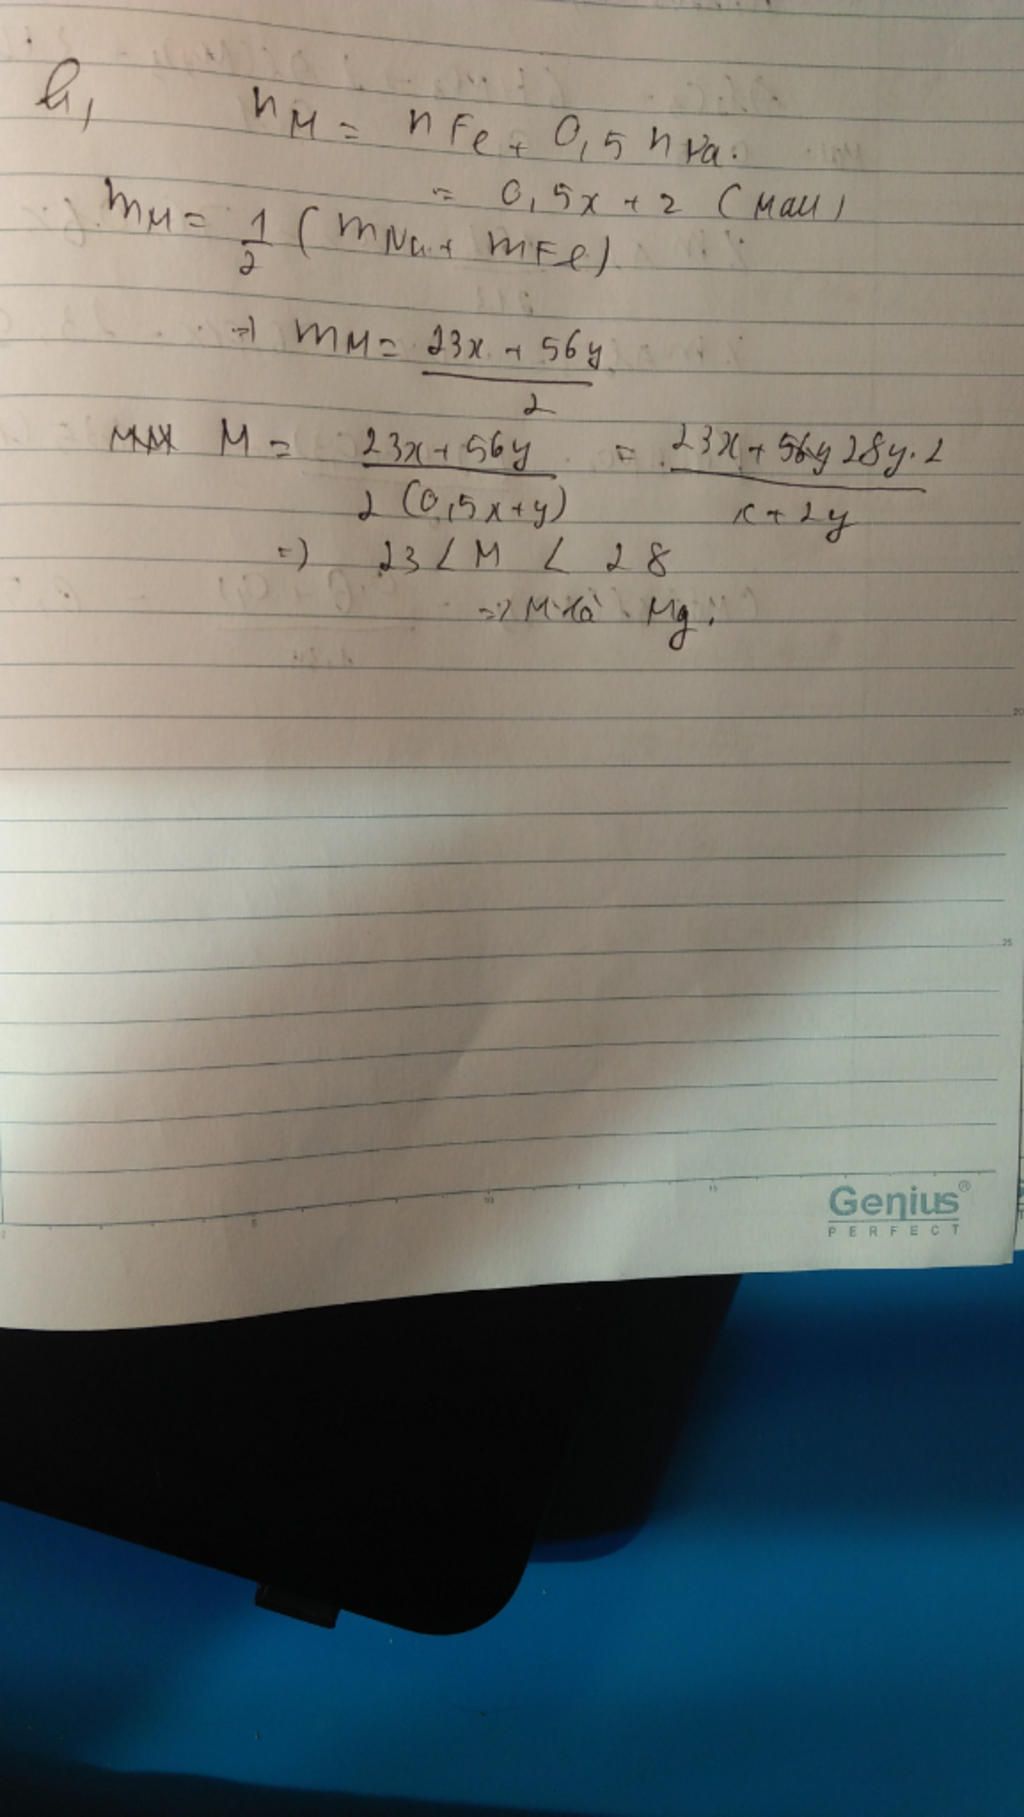 b,
nM = nFe + 0,5 nNa.
= 0,5x + 2 (mol)
mM = 1/2 (mNa + mFe)
=> mM = 23x + 56y / 2
M = 23x + 56y / 2 (0,5x + y) = 23x + 28y.2 / x + 2y
=> 23 < M < 28
=> M là Mg.
20
25
5
10
15
Genius®
PERFECT